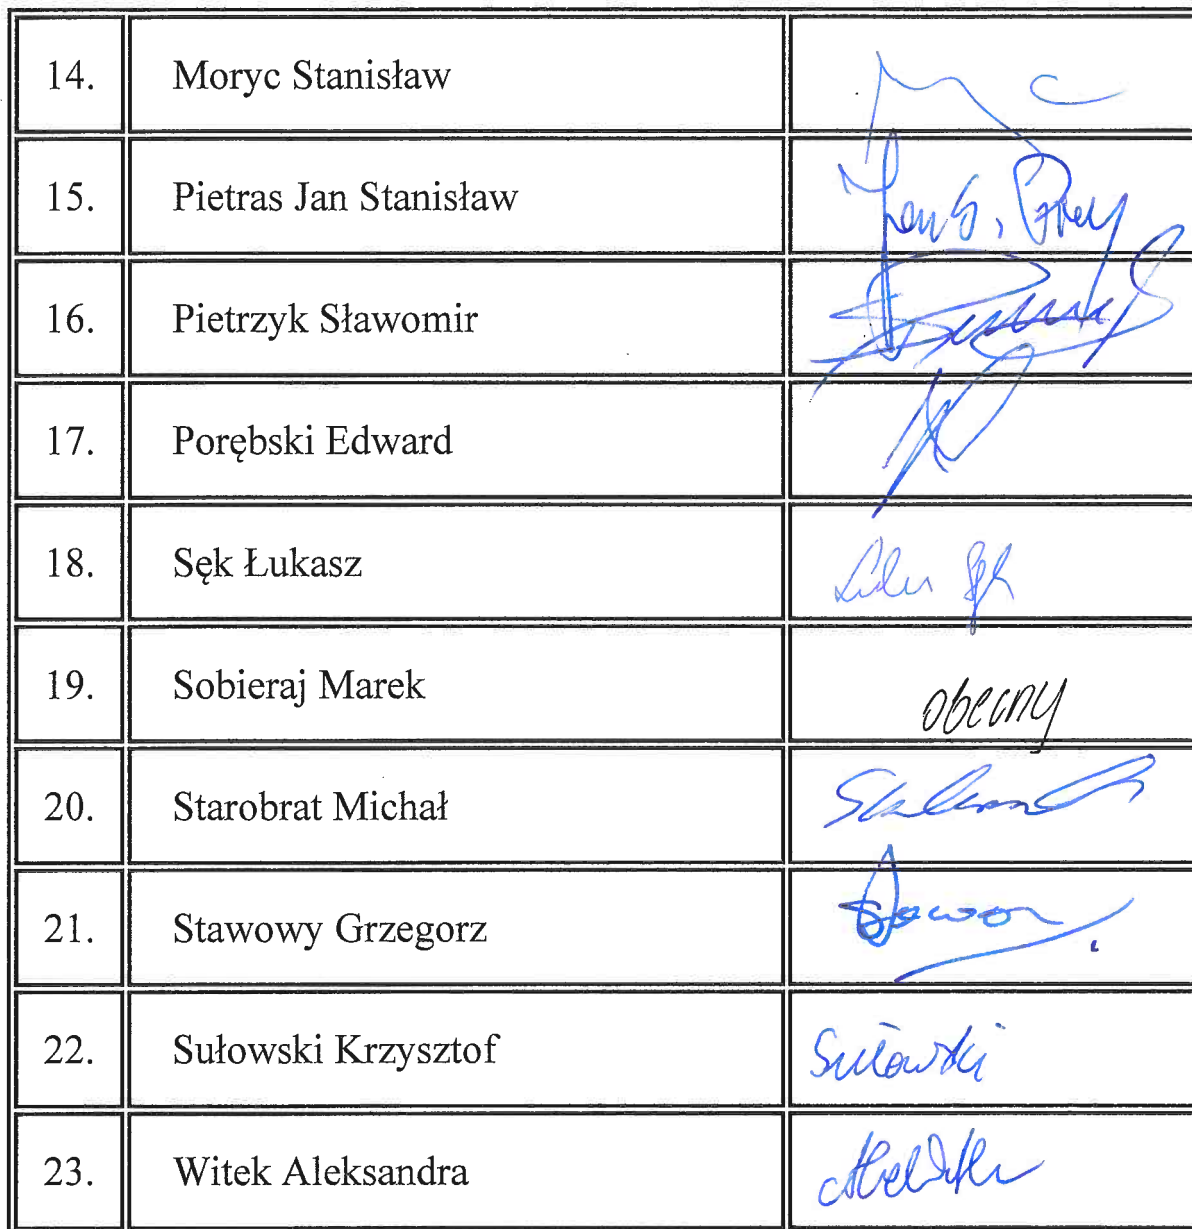 14. Moryc Stanisław
15. Pietras Jan Stanisław
16. Pietrzyk Sławomir
17. Porębski Edward
18. Sęk Łukasz
19. Sobieraj Marek obecny
20. Starobrat Michał
21. Stawowy Grzegorz
22. Sułowski Krzysztof Sułowski
23. Witek Aleksandra